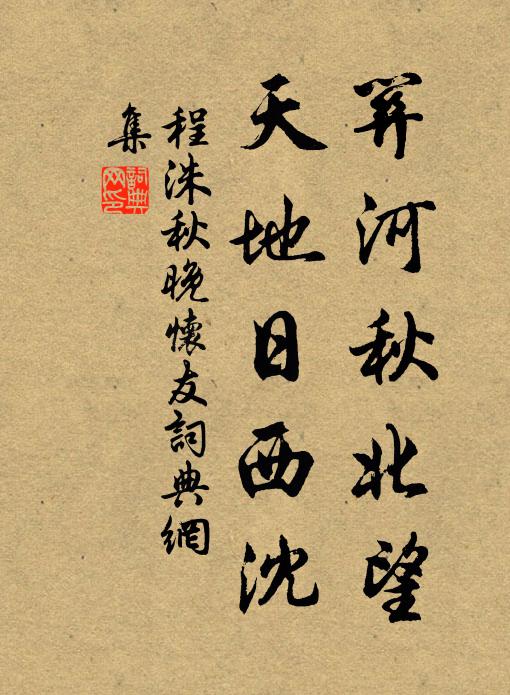 關河秋北望
天地日西沈
程洙秋晚懷友詞典網
集
詞典
网印